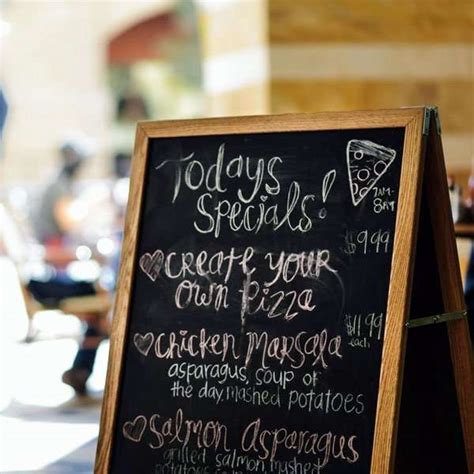 Todays
Specials!
7AM-
8PM
$9.99
Create Your
Own Pizza
$11.99
each
Chicken Marsala
asparagus, soup of
the day, mashed potatoes
Salmon Asparagus
grilled salmon, mushed
potatoes